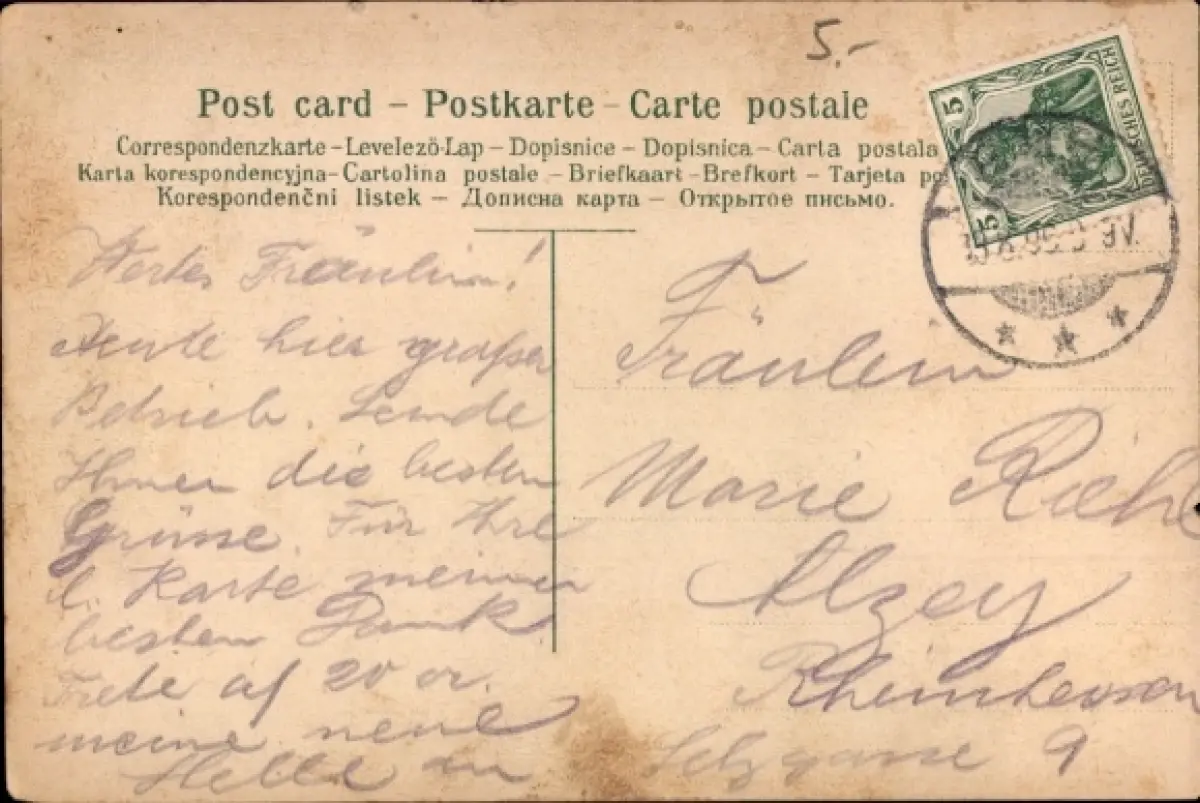 5.-
Post card – Postkarte – Carte postale
Correspondenzkarte – Levelező-Lap – Dopisnice – Dopisnica – Carta postala
Karta korespondencyjna – Cartolina postale – Briefkaart – Brefkort – Tarjeta po
Korespondenčni listek – Дописна карта – Открытое письмо.
5 DEUTSCHES REICH 5
Wertes Fräulein!
Heute hier großer
Betrieb. Sende
Ihnen die besten
Grüsse. Für Ihre
l. Karte meinen
besten Dank
Trete af 20 cr.
meine neue
Stelle an
Fräulein
Marie
Alzey
Rheinhessen
Selzgasse 9